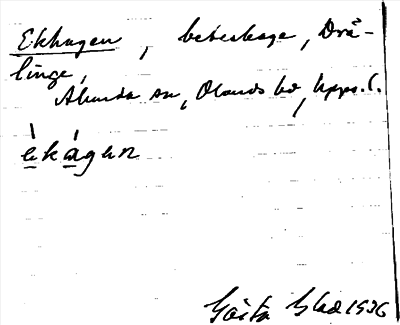 Ekhagen, beteshage, Drä-
linge,
Ålunda sn, Olands hd, Upps. l.
ekagen
Gösta Blad 1936